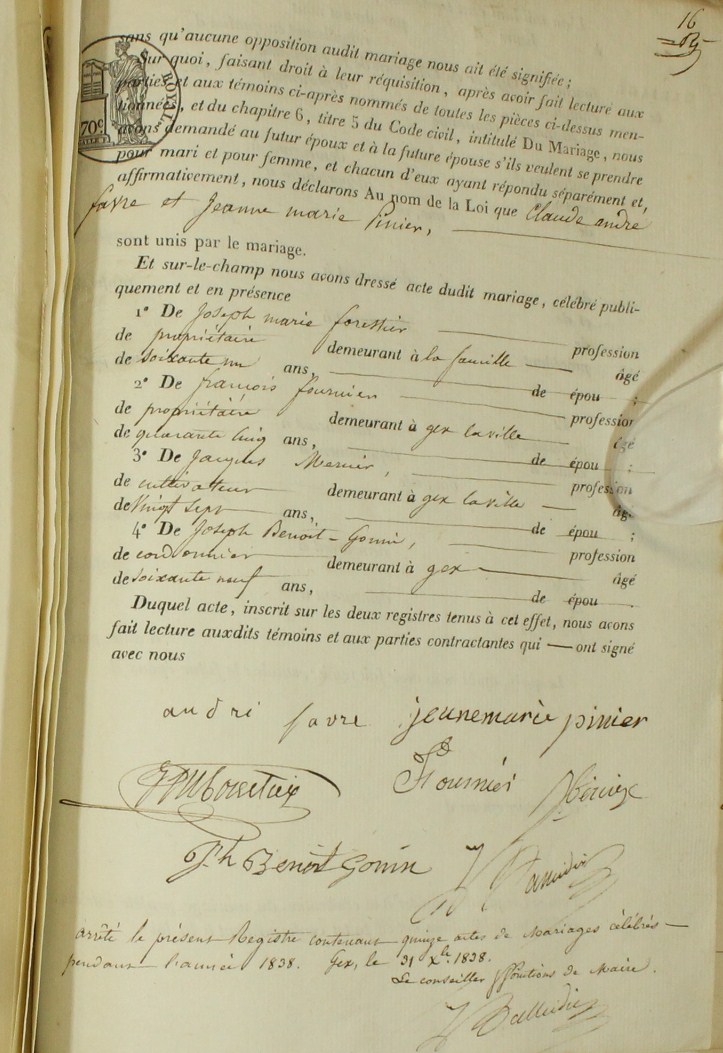 16
sans qu'aucune opposition audit mariage nous ait été signifiée ;
Sur quoi, faisant droit à leur réquisition, après avoir fait lecture aux
parties et aux témoins ci-après nommés de toutes les pièces ci-dessus men-
tionnées, et du chapitre 6, titre 5 du Code civil, intitulé Du Mariage, nous
avons demandé au futur époux et à la future épouse s'ils veulent se prendre
pour mari et pour femme, et chacun d'eux ayant répondu séparément et
affirmativement, nous déclarons Au nom de la Loi que Claude andré
favre et Jeanne marie Pinier,
sont unis par le mariage.
Et sur-le-champ nous avons dressé acte dudit mariage, célébré publi-
quement et en présence
1° De Joseph marie forestier profession
de propriétaire demeurant à la âgé
de soixante un ans, de époux ;
2° De françois fournier profession
de propriétaire demeurant à gex la ville âgé
de quarante cinq ans, de époux ;
3° De Jacques Mercier, profession
de cultivateur demeurant à gex la ville âgé
de vingt sept ans, de époux ;
4° De Joseph Benoit-Gonin, profession
de cordonnier demeurant à gex âgé
de soixante neuf ans, de époux .
Duquel acte, inscrit sur les deux registres tenus à cet effet, nous avons
fait lecture auxdits témoins et aux parties contractantes qui — ont signé
avec nous
andri favre jeunemarie pinier
Fournier
Jh Benoit Gonin
arrêté le présent Registre contenant quinze actes de Mariages célébrés
pendant l'année 1838. Gex, le 31 Xbre 1838.
Le conseiller ffonctions de Maire.
ROYAL
70c